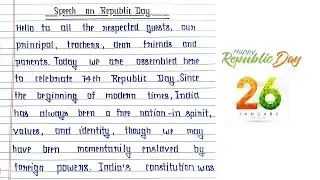 Speech on Republic Day
Hello to all the respected guests, our
principal, teachers, dear friends and
parents. Today we are assembled here
to celebrate 74th Republic Day. Since
the beginning of modern times, India
has always been a free nation-in spirit,
values, and identity, though we may
have been momentarily enslaved by
foreign powers. India's constitution was
Happy
Republic Day
26
JANUARY